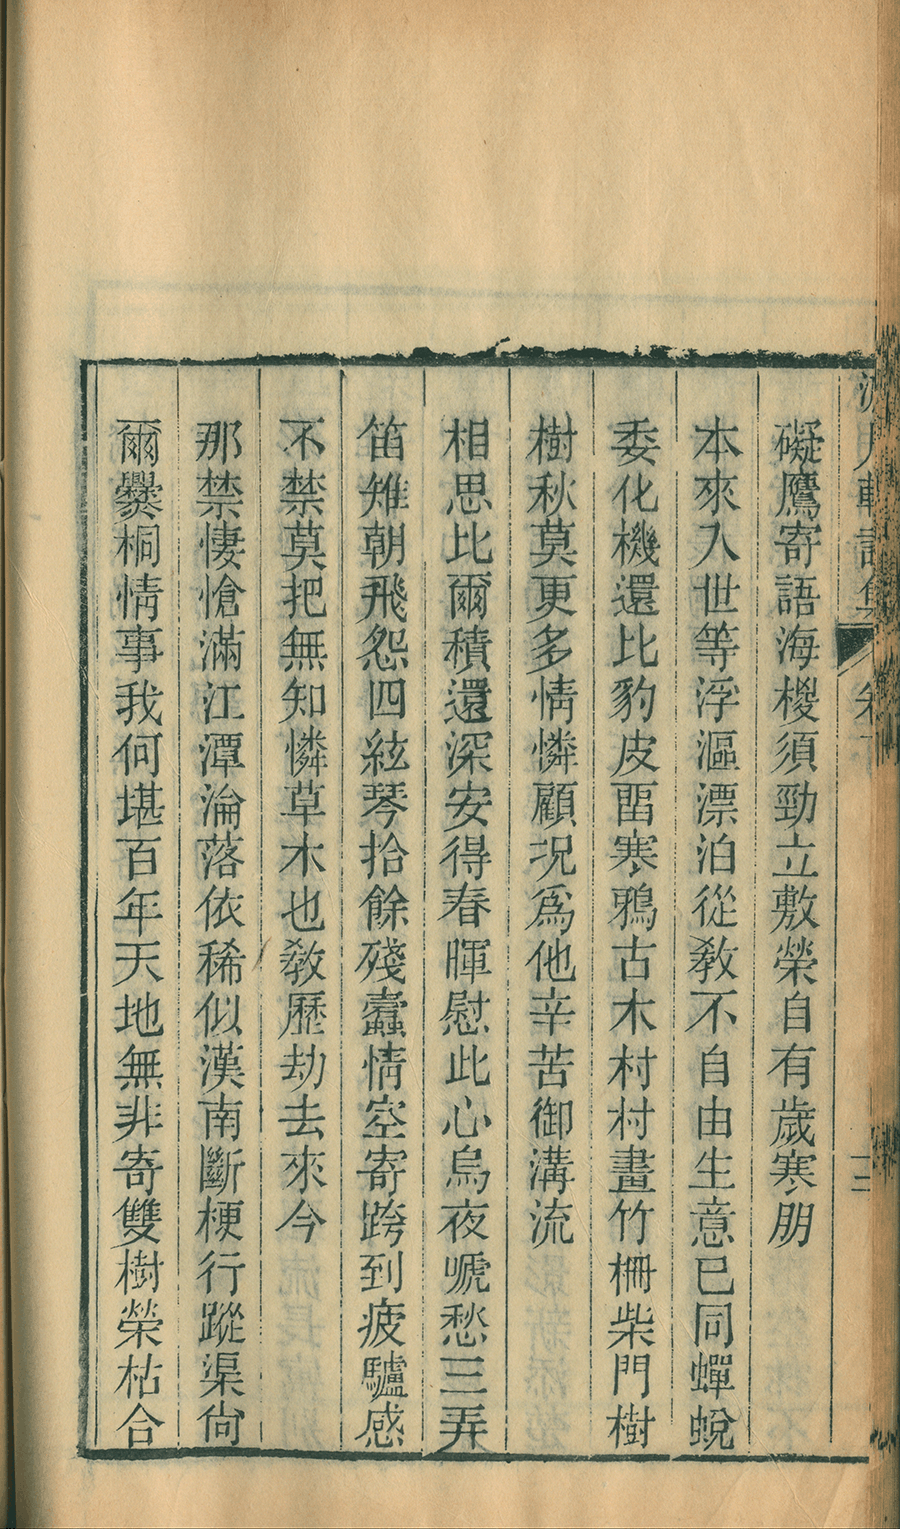 月軒詩集
卷
三
礙鷹寄語海椶須勁立敷榮自有歲寒朋
本來入世等浮漚漂泊從教不自由生意已同蟬蛻
委化機還比豹皮畱寒鴉古木村村畫竹柵柴門樹
樹秋莫更多情憐顧況爲他辛苦御溝流
相思比爾積還深安得春暉慰此心烏夜嗁愁三弄
笛雉朝飛怨四絃琴拾餘殘蠹情空寄跨到疲驢感
不禁莫把無知憐草木也敎歷劫去來今
那禁悽愴滿江潭淪落依稀似漢南斷梗行蹤渠尙
爾爨桐情事我何堪百年天地無非寄雙樹榮枯合